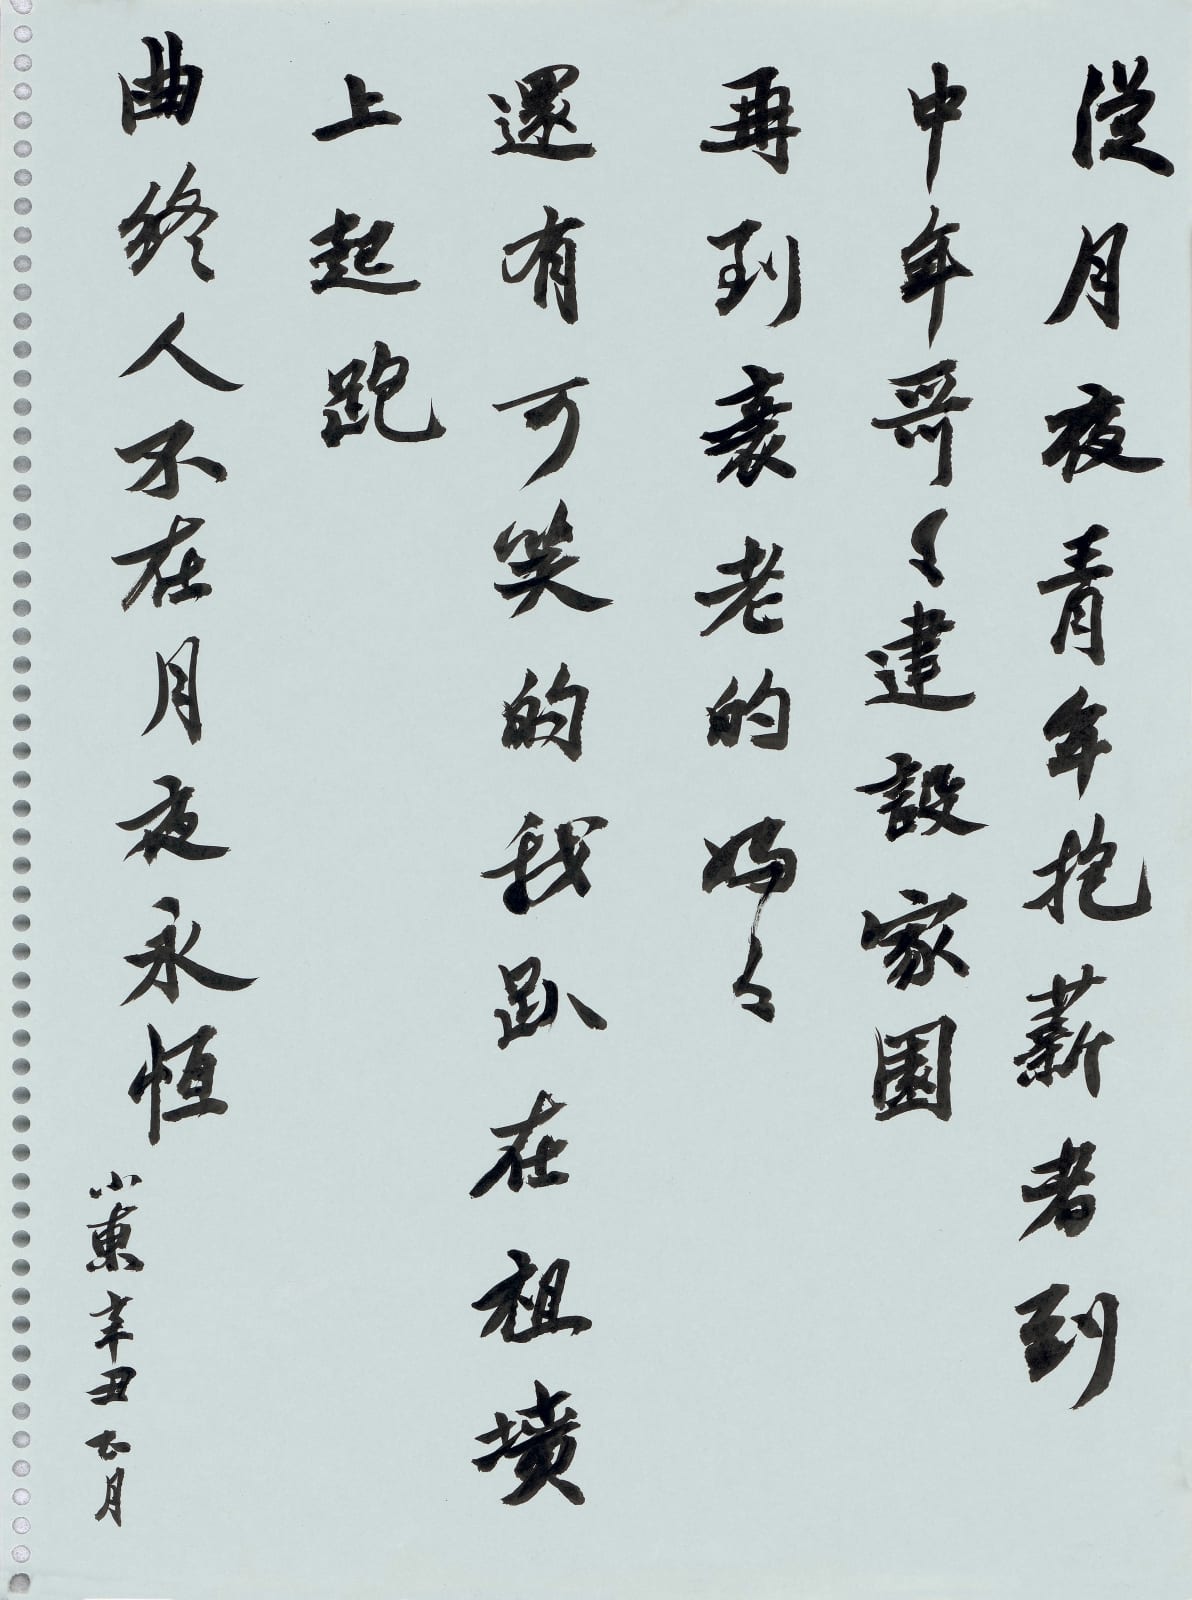 從月夜青年抱薪者到
中年哥〻建設家園
再到衰老的妈〻
還有可笑的我趴在祖墳
上起跑
曲終人不在月夜永恆
小東辛丑正月